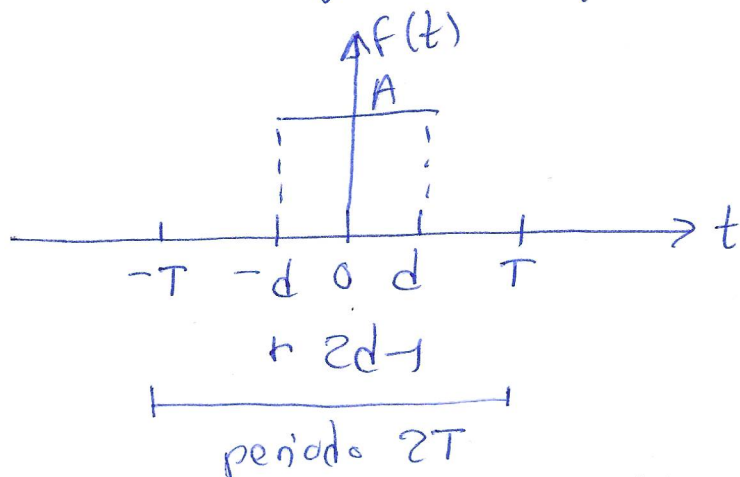 f(t)
A
t
-T -d 0 d T
2d
período 2T